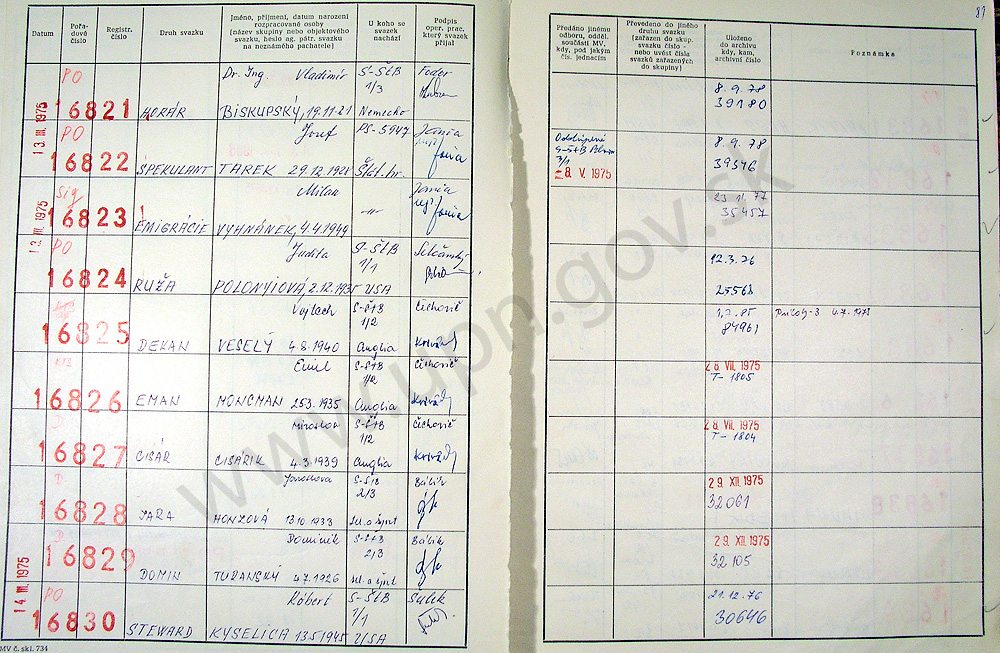 89
Datum
Pořadové číslo
Registr. číslo
Druh svazku
Jméno, příjmení, datum narození
rozpracované osoby
(název skupiny nebo objektového
svazku, heslo ag. pátr. svazku
na neznámého pachatele)
U koho se
svazek
nachází
Podpis
oper. prac.
který svazek
přijal
Předáno jinému
odboru, odděl.
součásti MV,
kdy, pod jakým
čís. jednacím
Převedeno do jiného
druhu svazku
(zařazen do skup.
svazku číslo -
nebo uvést čísla
svazků zařazených
do skupiny)
Uloženo
do archivu
kdy, kam,
archivní číslo
Poznámka
PO Dr. Ing. Vladimír S-ŠtB Fodor 8.9.78
13. III. 1975 16821 HORÁR BISKUPSKÝ, 19.11.21 1/3 Nemecko 39180
PO Jozef PS-5947 Jamia 8.9.78
16822 ŠPEKULANT TAREK 29.12.1928 Št.hr. 8. V. 1975 39546
Milan
13. III. 1975 16823 EMIGRÁCIE VYHNÁNEK, 4.4.1944 -"- 23 11. 77 35457
PO Judita S-ŠtB 12.3.76
16824 RUŽA POLONYIOVÁ, 2.12.1935 1/1 USA 25568
Vojtech S-ŠtB Čechovič 1.7.85
16825 DEKAN VESELÝ 4.8.1940 1/2 Anglia 84961 4.7.1978
Emil S-ŠtB Čechovič 28. VII. 1975
16826 EMAN MONCMAN 25.3.1935 1/2 Anglia T-1805
Miroslav S-ŠtB Čechovič 28. VII. 1975
16827 CISÁR CISÁRIK 4.3.1939 1/2 Anglia T-1804
D Jaroslava S-ŠtB Bálik 29. XII. 1975
16828 JARA HONZOVÁ 13.10.1933 2/3 32061
D Dominik S-ŠtB Bálik 29. XII. 1975
16829 DOMIN TURANSKY 4.7.1926 2/3 32105
PO Róbert S-ŠtB Sulek 21.12.76
14. III. 1975 16830 STEWARD KYSELICA 13.5.1945 1/1 USA 30646
MV č. skl. 734
www.upn.gov.sk